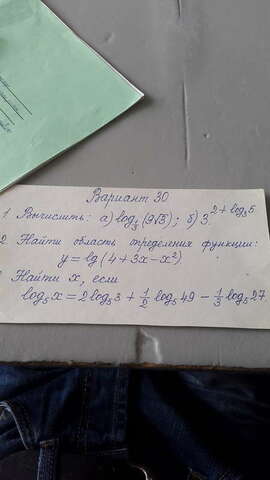 Вариант 30
1. Вычислить: а) log_{1/3}(9√3); б) 3^{2+log_3 5}
2. Найти область определения функции:
y = lg(4+3x-x²)
Найти x, если
log_5 x = 2log_5 3 + 1/2 log_5 49 - 1/3 log_5 27